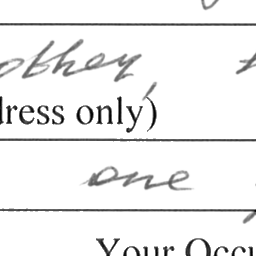 othey,
dress only)
one
Your Occu